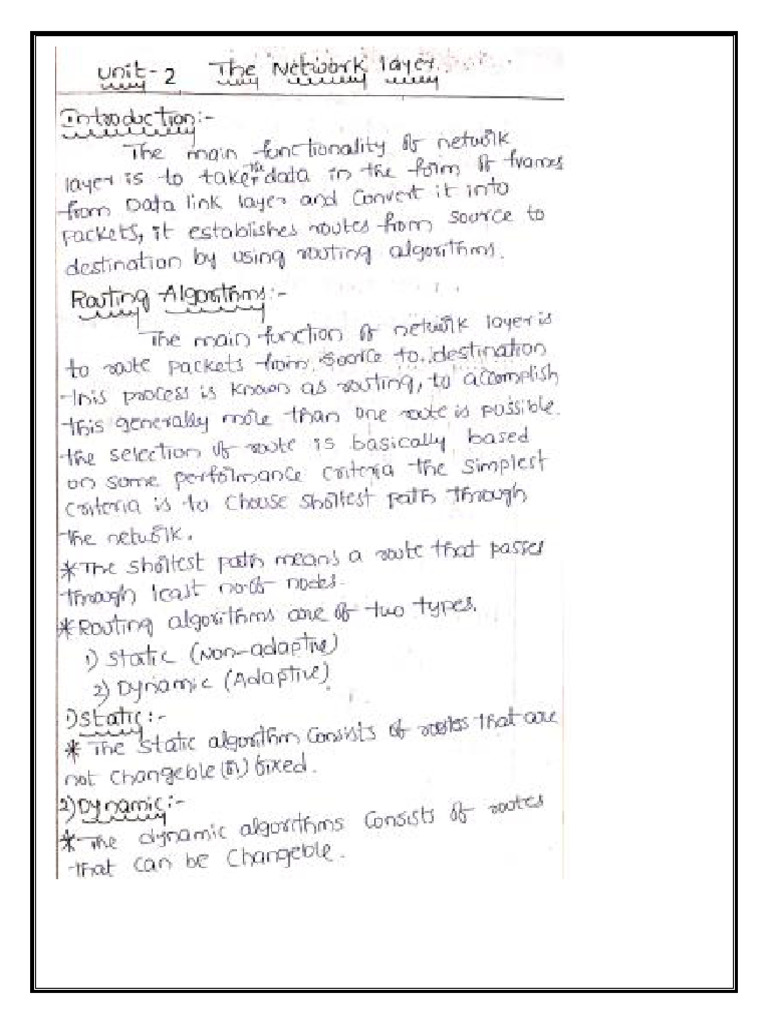 Unit-2 The Network layer.
Introduction:-
The main functionality of network
layer is to take the data in the form of frames
from Data link layer and convert it into
packets, it establishes routes from source to
destination by using routing algorithms.
Routing Algorithms:-
The main function of network layer is
to route packets from source to destination
this process is known as routing, to accomplish
this generally more than one route is possible.
the selection of route is basically based
on some performance criteria the simplest
criteria is to choose shortest path through
the network.
*The shortest path means a route that passes
through least no.of nodes.
*Routing algorithms are of two types.
1) Static (Non-adaptive)
2) Dynamic (Adaptive)
1)Static:-
* The static algorithm consists of routes that are
not changeble (or) fixed.
2)Dynamic:-
*The dynamic algorithms consists of routes
that can be changeble.